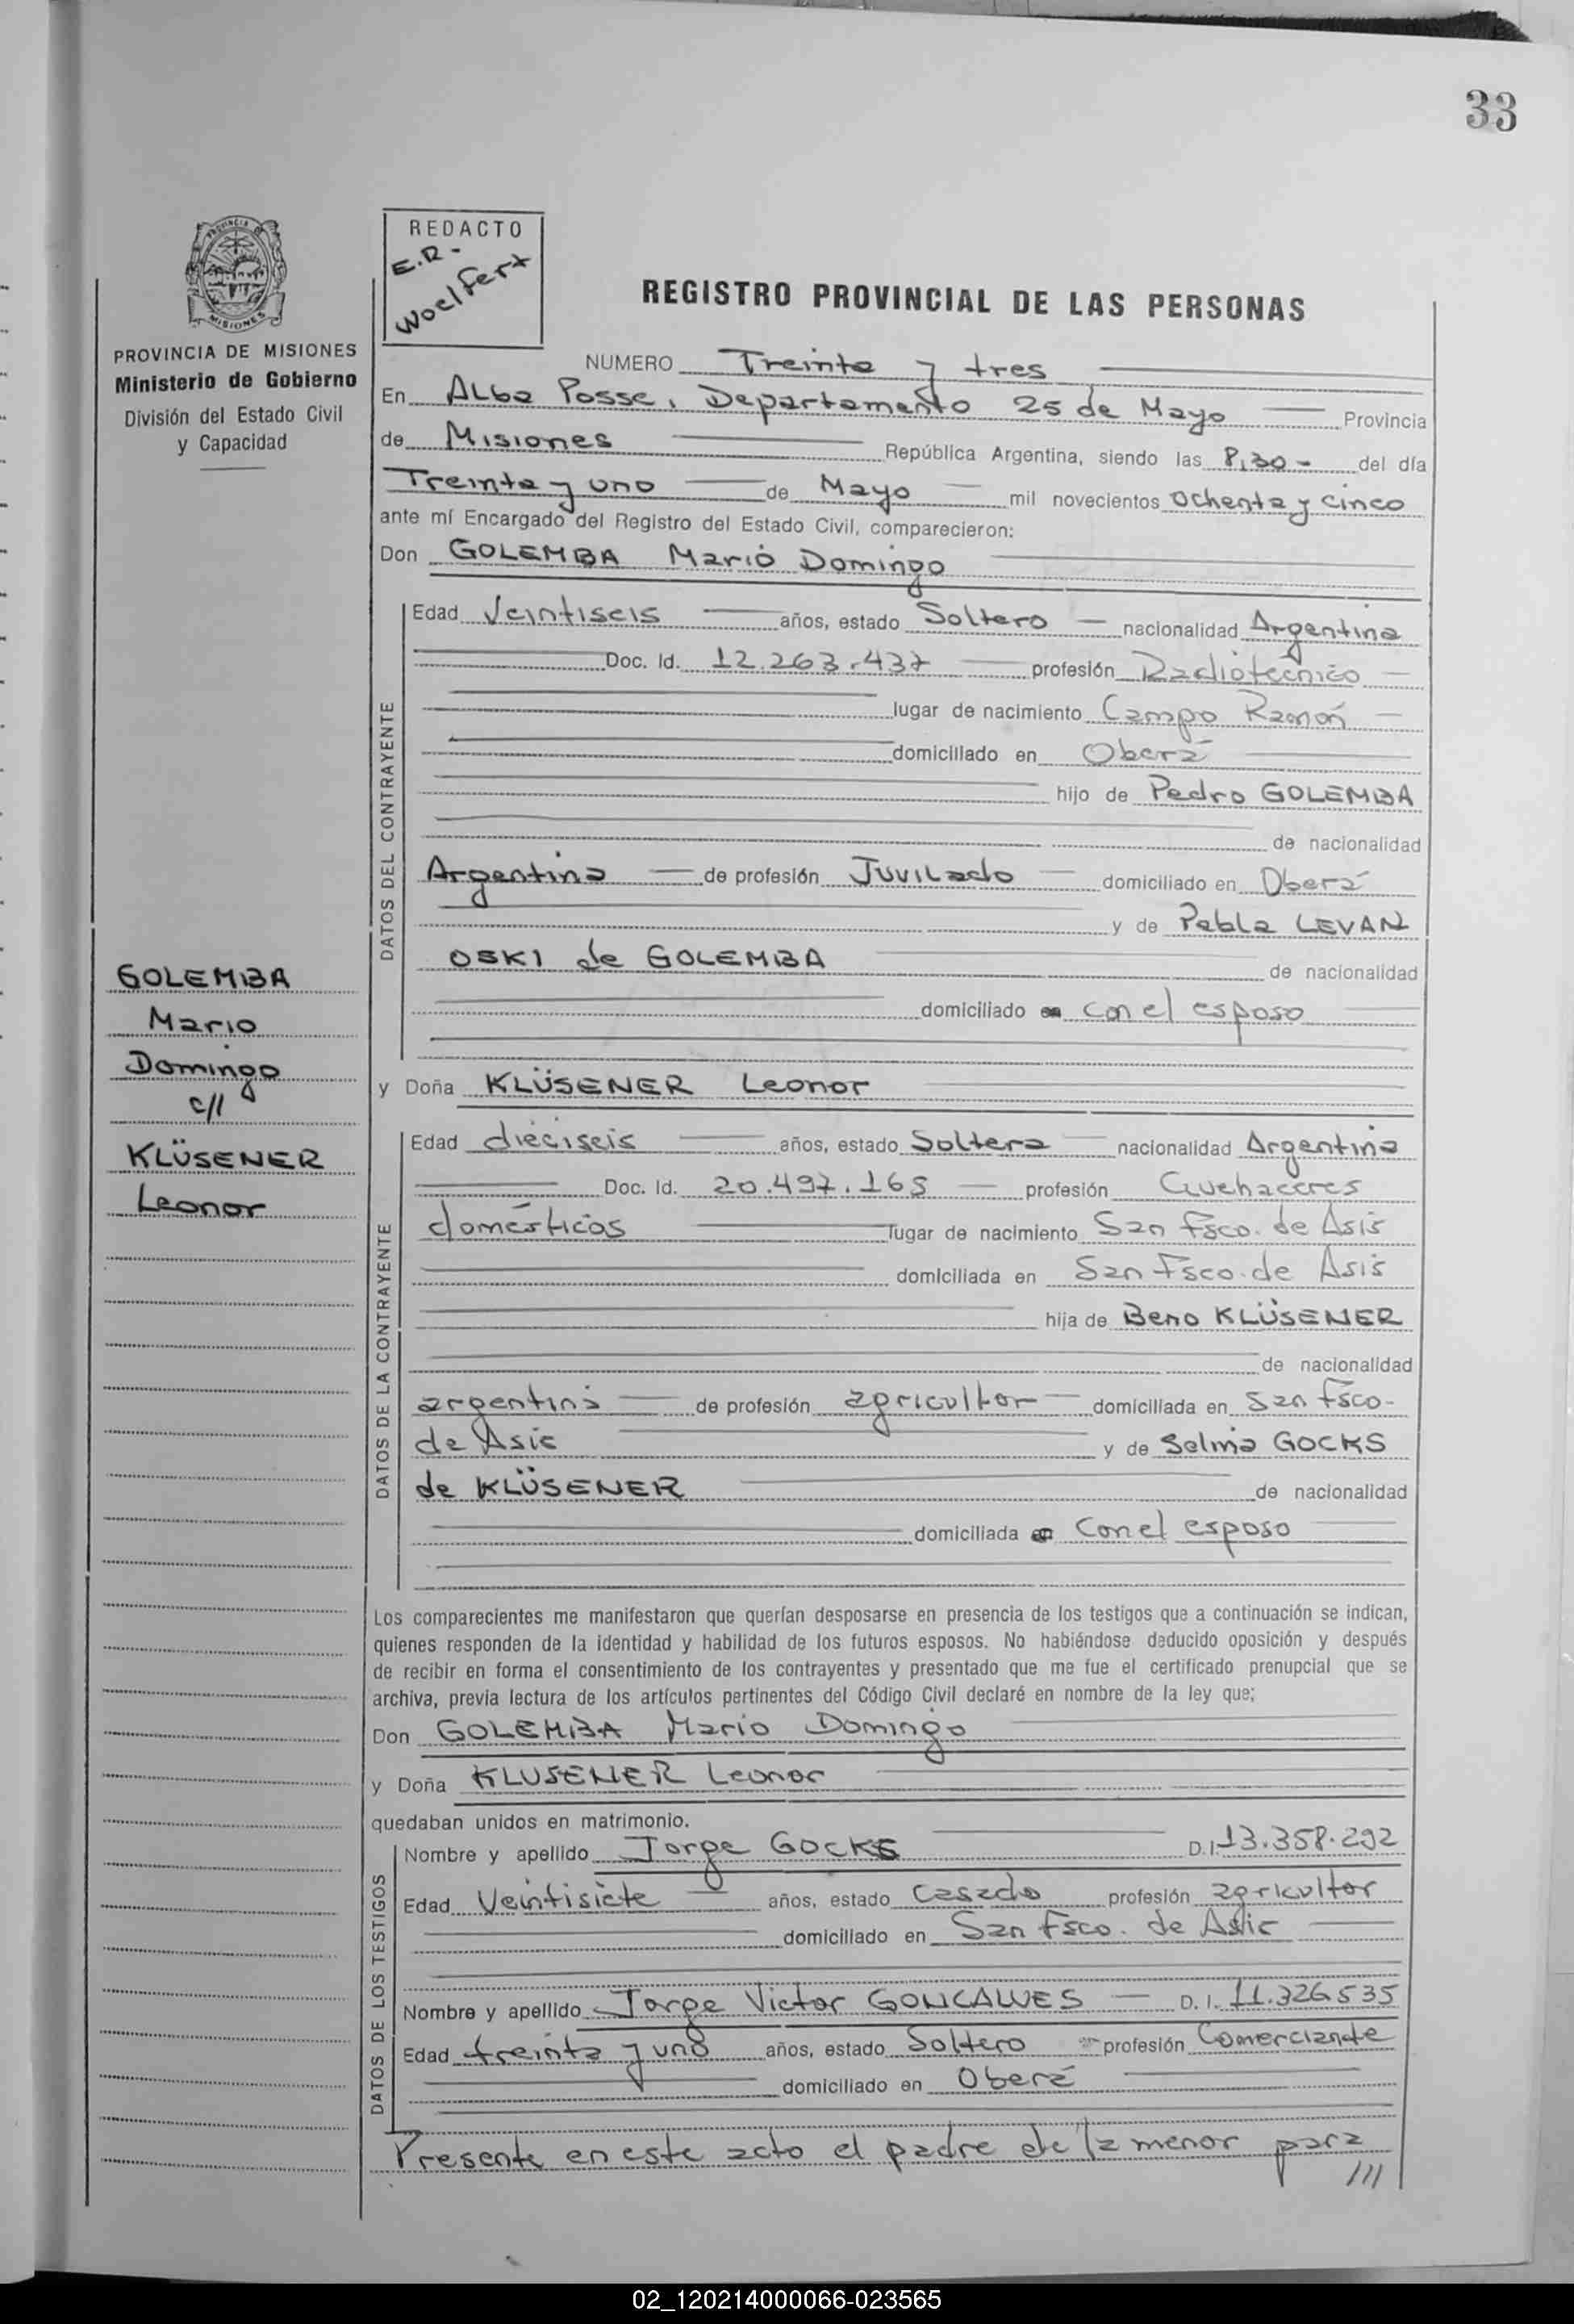 33
PROVINCIA DE MISIONES
Ministerio de Gobierno
División del Estado Civil
y Capacidad
REDACTO
E.R.-
Woelfert
REGISTRO PROVINCIAL DE LAS PERSONAS
NUMERO Treinta y tres
En Alba Posse, Departamento 25 de Mayo Provincia
de Misiones República Argentina, siendo las 8,30- del día
Treinta y uno de Mayo mil novecientos ochenta y cinco
ante mí Encargado del Registro del Estado Civil, comparecieron:
Don GOLEMBA Mario Domingo
DATOS DEL CONTRAYENTE
Edad Veintiseis años, estado Soltero nacionalidad Argentina
Doc. Id. 12.263.437 profesión Radiotecnico
lugar de nacimiento Campo Ramón
domiciliado en Oberá
hijo de Pedro GOLEMBA
de nacionalidad
Argentina de profesión Juvilado domiciliado en Oberá
y de Pabla LEVAN
OSKI de GOLEMBA de nacionalidad
domiciliado con el esposo
GOLEMBA
Mario
Domingo
c//
KLÜSENER
Leonor
y Doña KLÜSENER Leonor
DATOS DE LA CONTRAYENTE
Edad dieciseis años, estado Soltera nacionalidad Argentina
Doc. Id. 20.497.165 profesión Quehaceres
domésticos lugar de nacimiento San Fsco. de Asis
domiciliada en San Fsco. de Asis
hija de Beno KLÜSENER
de nacionalidad
argentina de profesión agricultor domiciliada en San Fsco-
de Asis y de Selma GOCKS
de KLÜSENER de nacionalidad
domiciliada con el esposo
Los comparecientes me manifestaron que querían desposarse en presencia de los testigos que a continuación se indican,
quienes responden de la identidad y habilidad de los futuros esposos. No habiéndose deducido oposición y después
de recibir en forma el consentimiento de los contrayentes y presentado que me fue el certificado prenupcial que se
archiva, previa lectura de los artículos pertinentes del Código Civil declaré en nombre de la ley que;
Don GOLEMBA Mario Domingo
y Doña KLUSENER Leonor
quedaban unidos en matrimonio.
DATOS DE LOS TESTIGOS
Nombre y apellido Jorge GOCKS D.I. 13.358.292
Edad Veintisiete años, estado Casado profesión agricultor
domiciliado en San Fsco. de Asis
Nombre y apellido Jorge Victor GONCALVES D.I. 11.326.535
Edad treinta y uno años, estado Soltero profesión Comerciante
domiciliado en Oberá
Presente en este acto el padre de la menor para
///
02_120214000066-023565